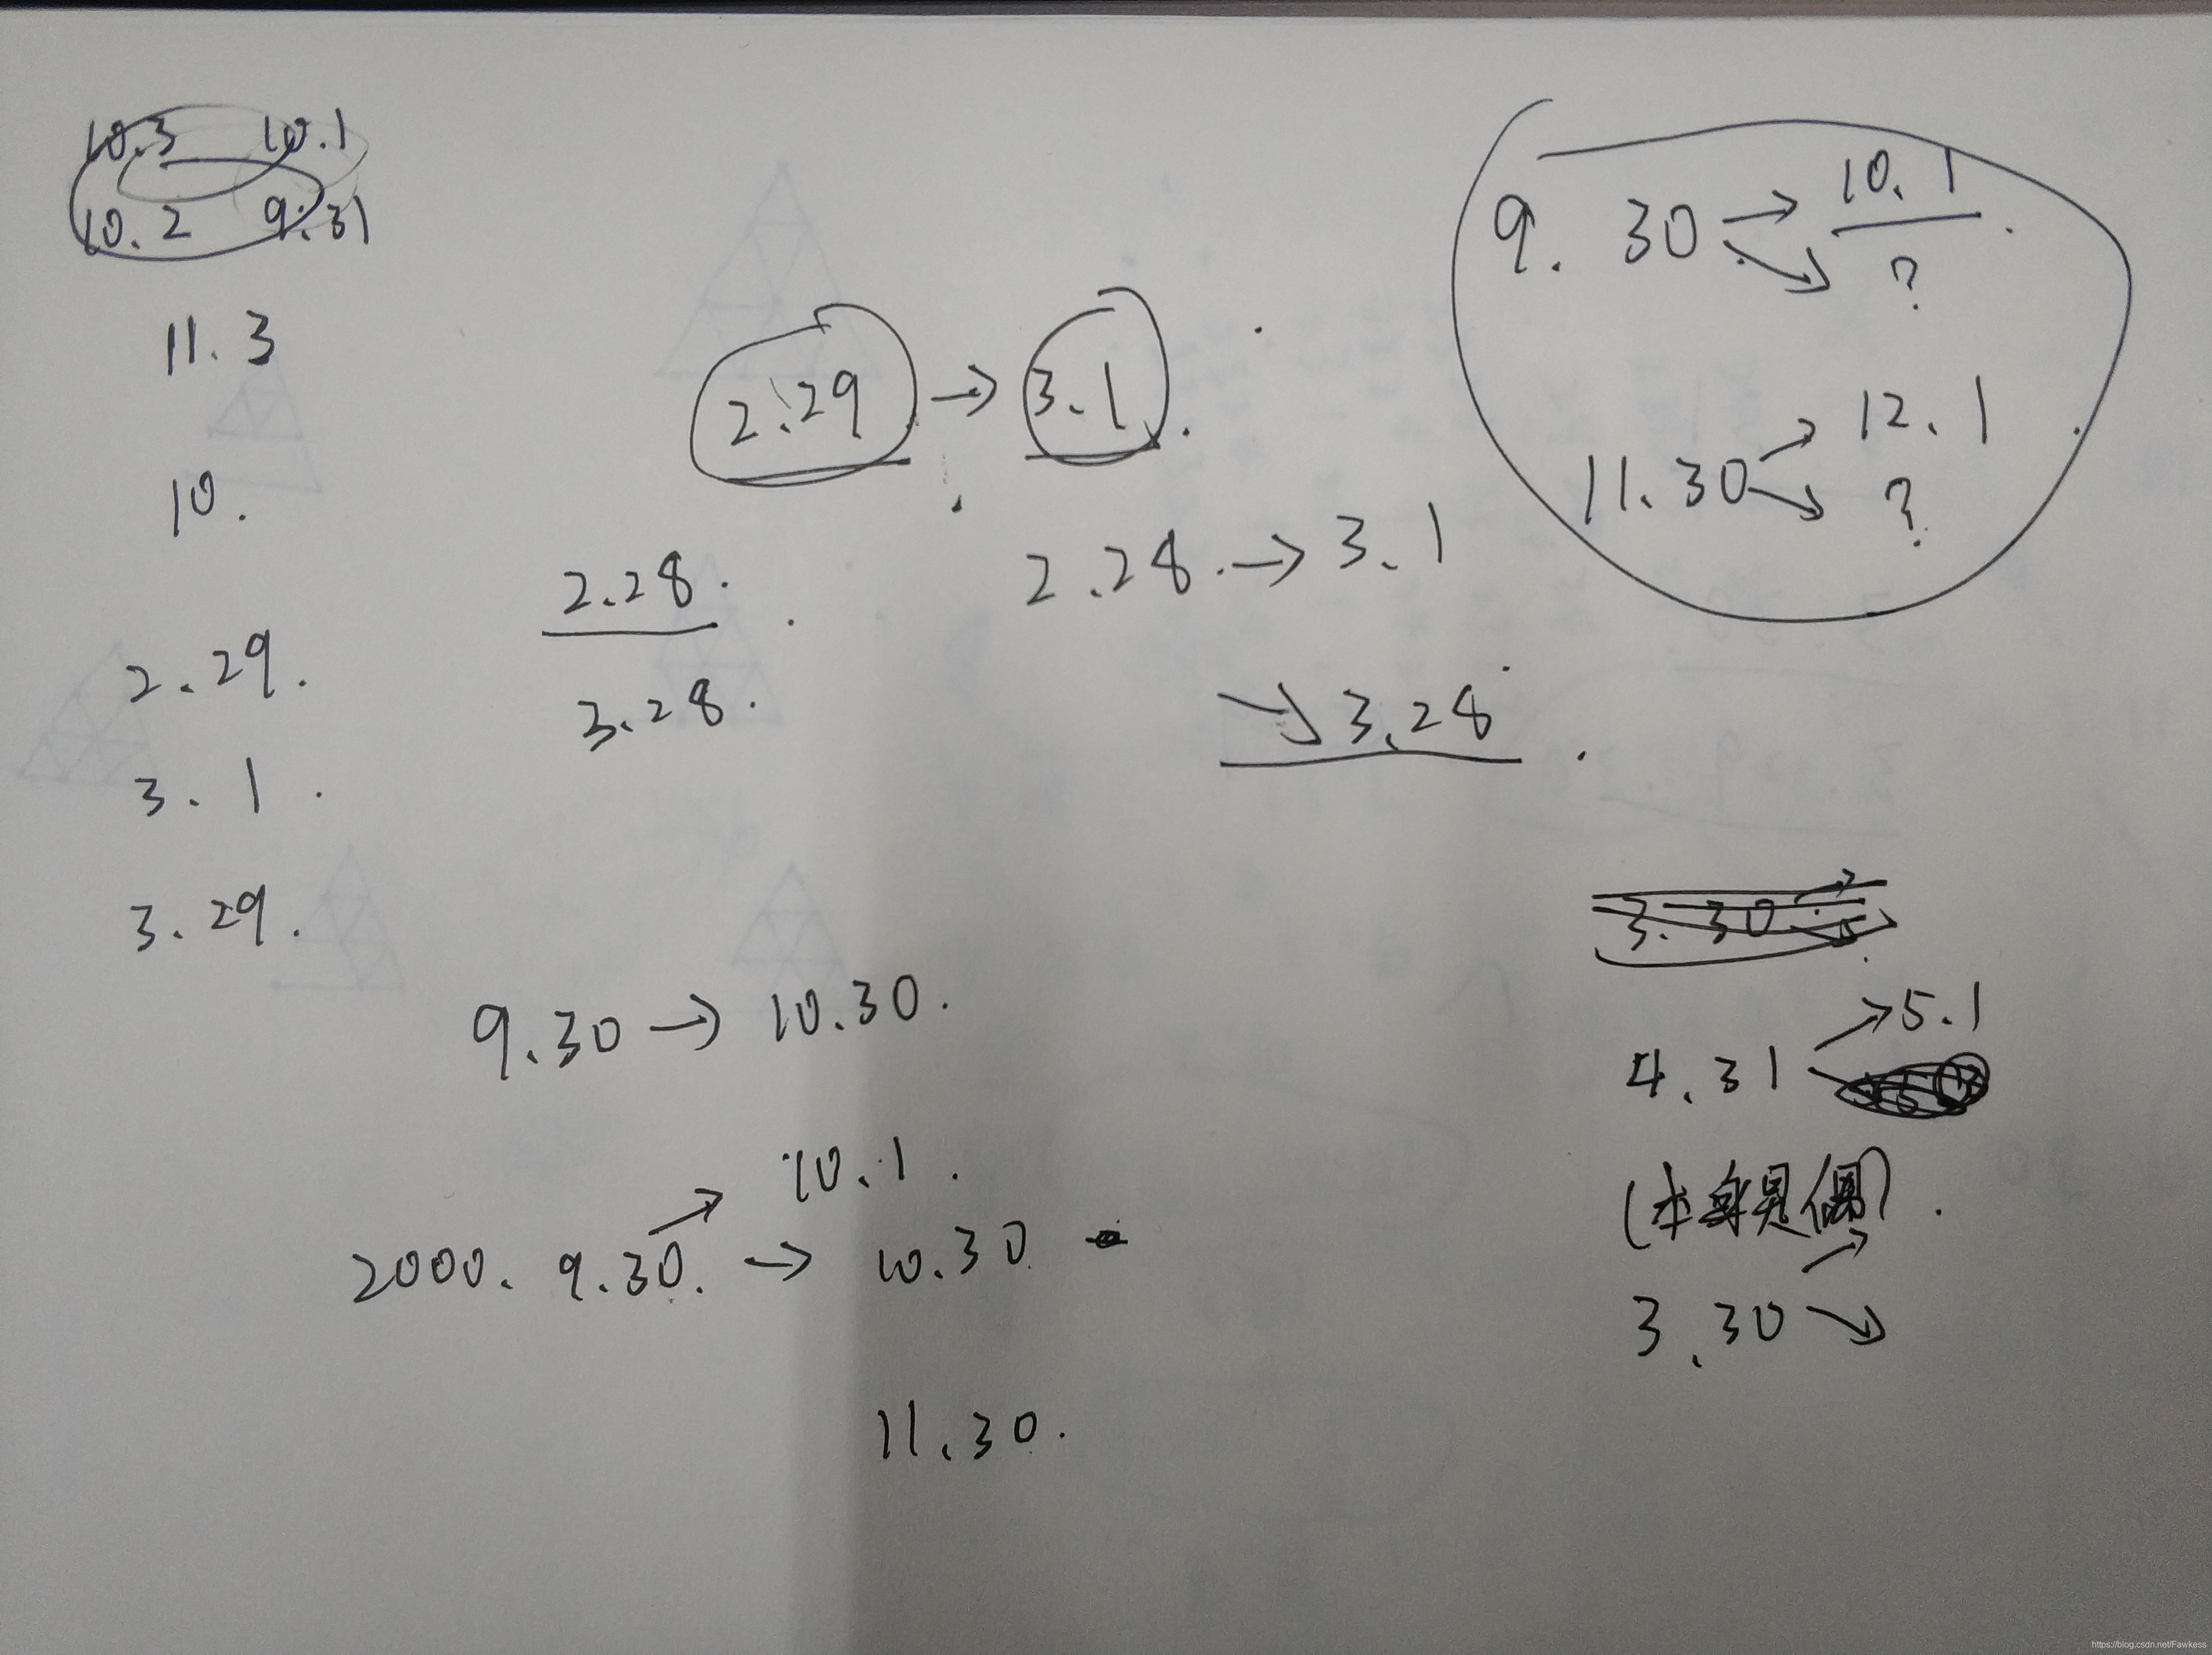 10.3 10.1
10.2 9.31
11.3
10.
2.29.
3.1.
3.29.
2.29 → 3.1.
2.28.
3.28.
2.28. → 3.1
↘ 3.28
9.30 → 10.1
↘ ?
11.30 ↗ 12.1
↘ ?
9.30 → 10.30.
↗ 10.1.
2000. 9.30. → 10.30
11.30.
3.30
4.31 ↗ 5.1
(本身是偶).
3.30 ↗
↘
https://blog.csdn.net/Fawkess